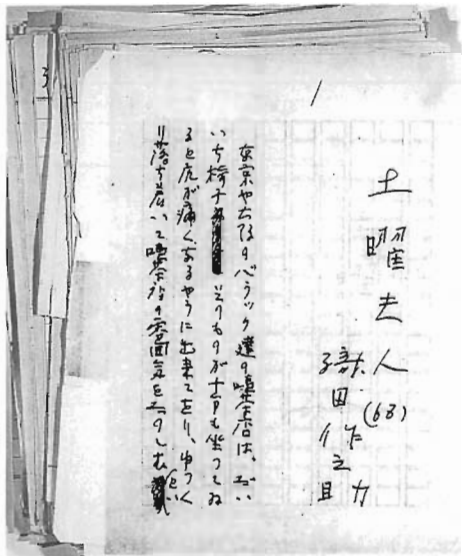 1
土曜夫人
(68)
織田作之助
東京や大阪のバラック建の喫茶店は、だい
いち椅子そのものが十分も坐つてゐ
ると尻が痛くなるやうに出来てをり、ゆつく
り落ち着いて喫茶店の雰囲気をたのしむ
3